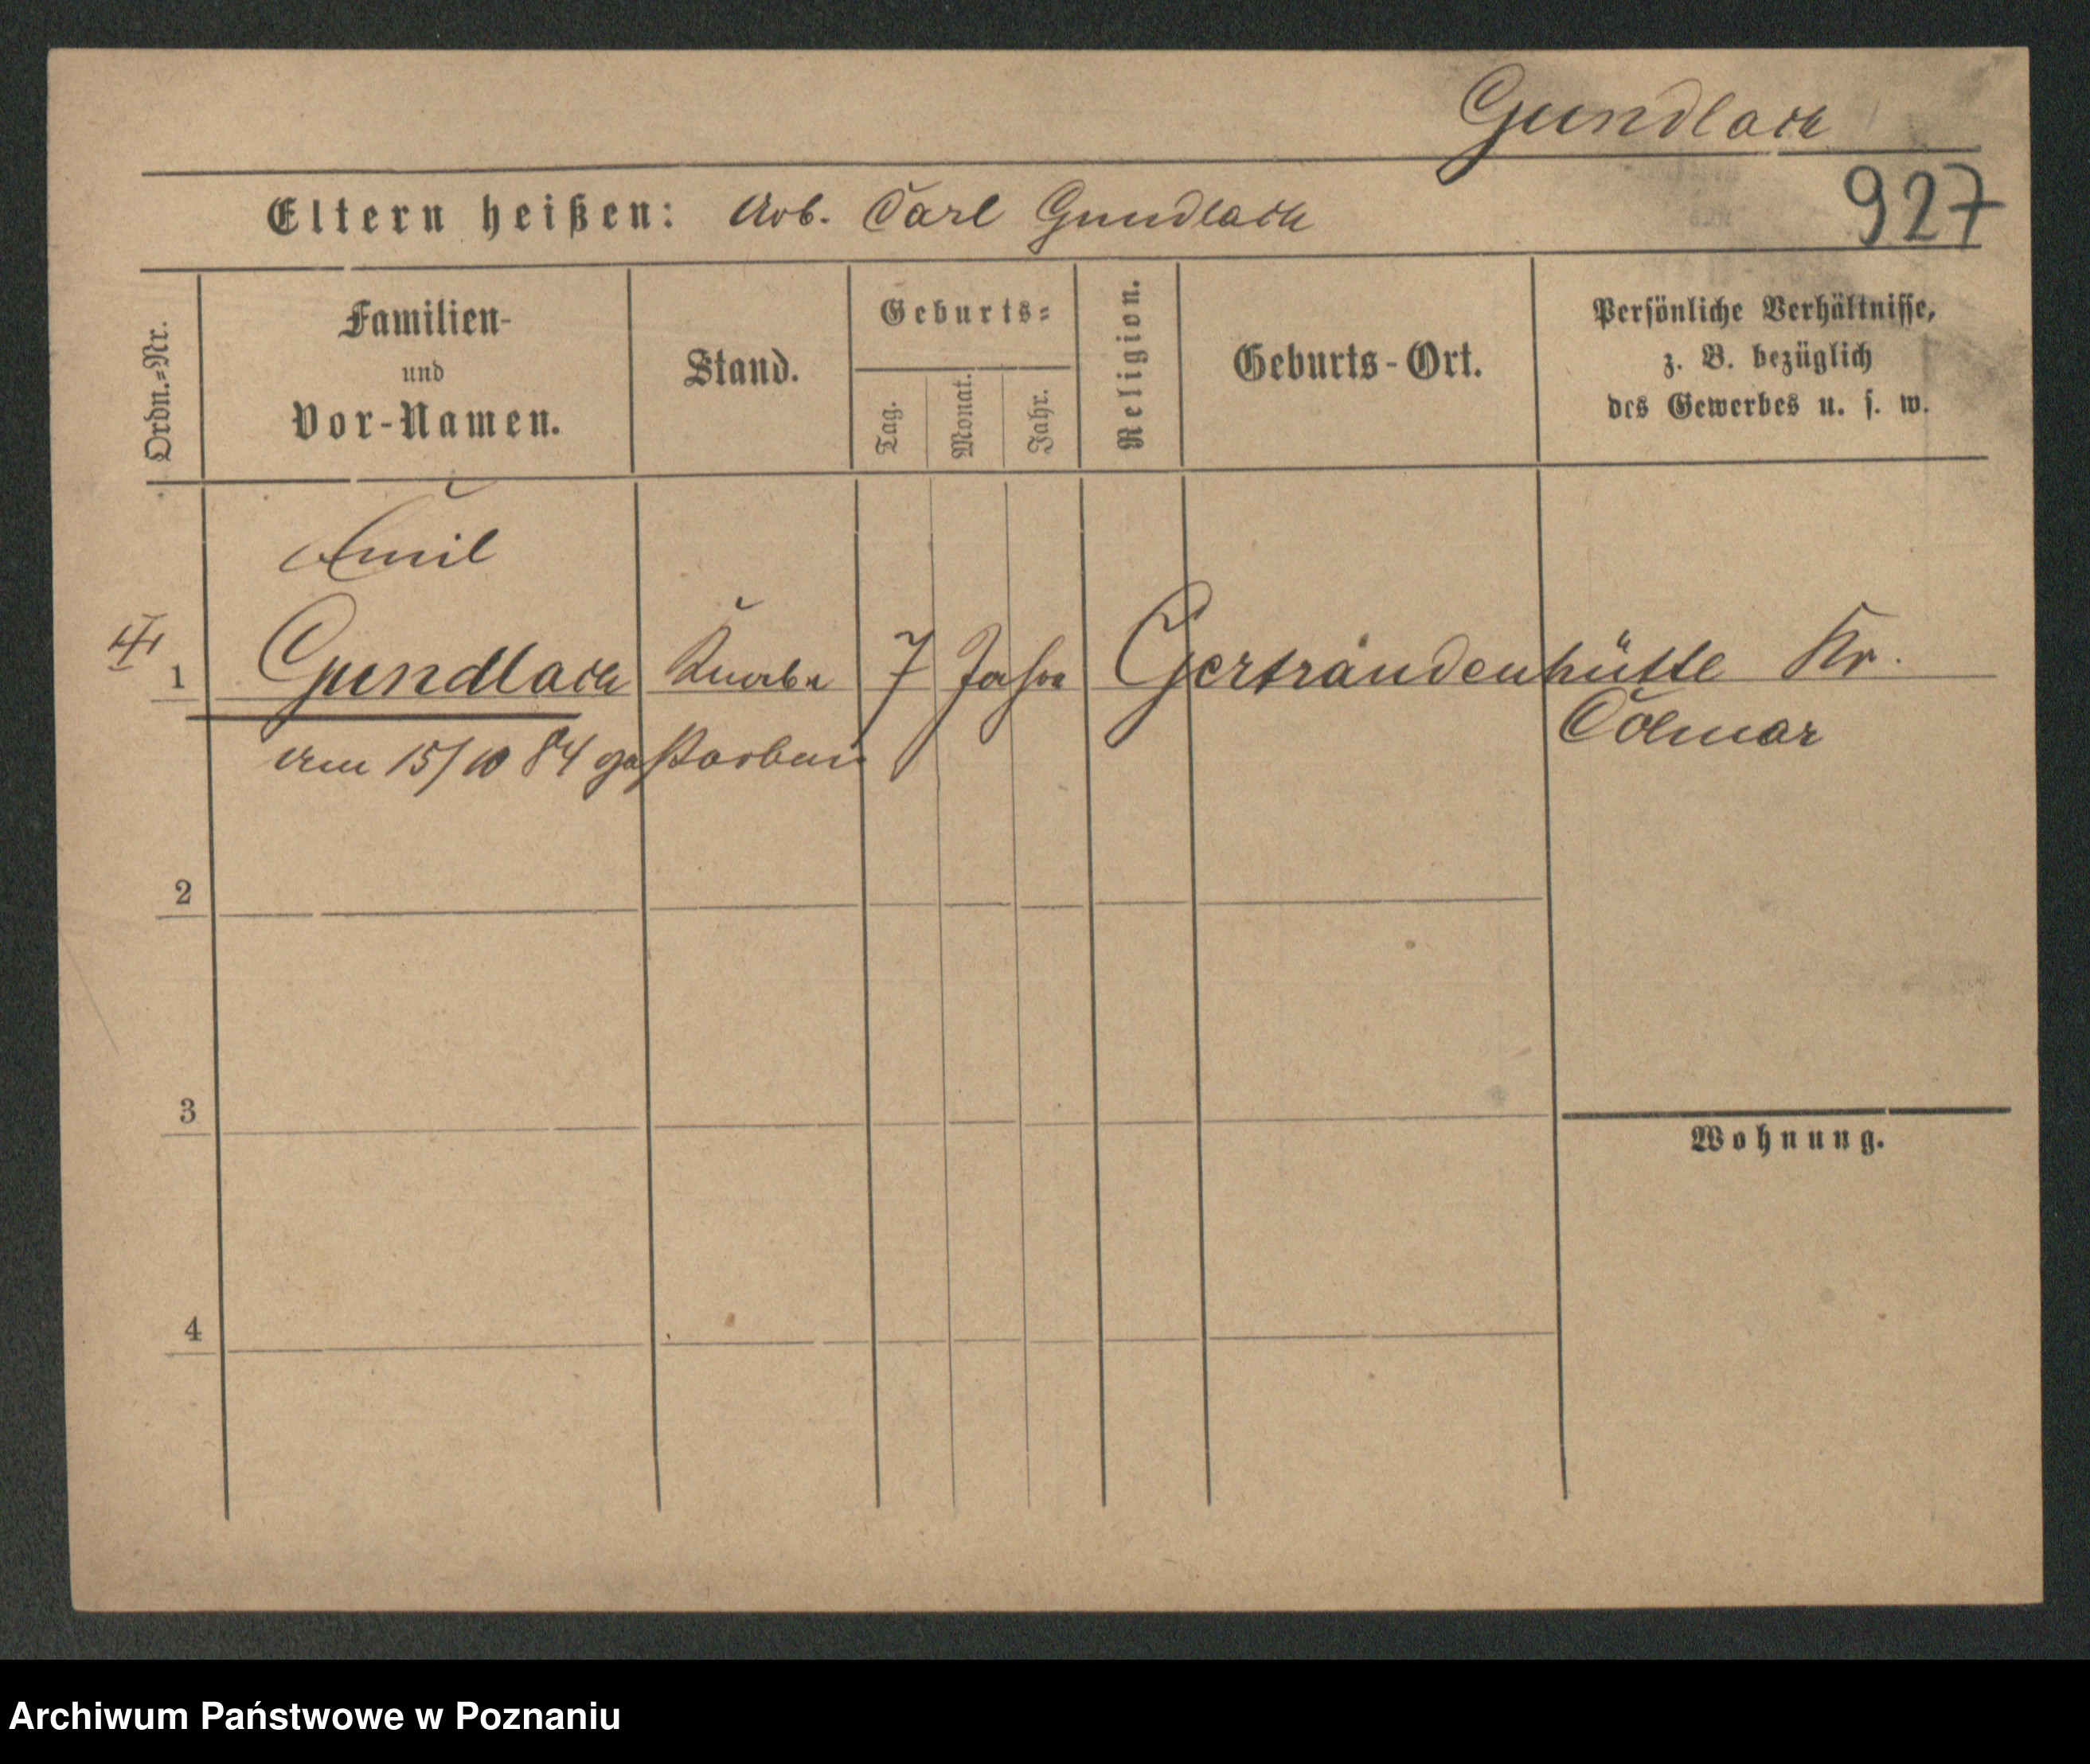 Gundlach
927
Eltern heißen: Arb. Carl Gundlach
Ordn.=Nr.
Familien-
und
Vor-Namen.
Stand.
Geburts=
Tag.
Monat.
Jahr.
Religion.
Geburts-Ort.
Persönliche Verhältnisse,
z. B. bezüglich
des Gewerbes u. s. w.
Emil
1 Gundlach Knabe 7 Jahre Gertraudenhütte Kr.
Colmar
am 15/10 84 gestorben
2
3
Wohnung.
4
Archiwum Państwowe w Poznaniu